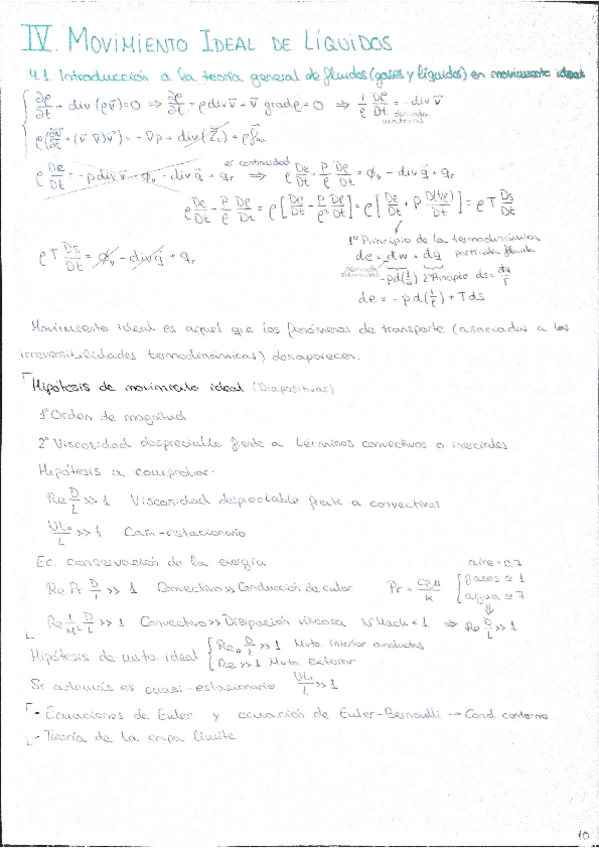 IV. MOVIMIENTO IDEAL DE LÍQUIDOS
4.1 Introducción a la teoría general de fluidos (gases y líquidos) en movimiento ideal
∂ρ/∂t + div(ρv̄)=0 ⇒ ∂ρ/∂t + ρ div v̄ + v̄ grad ρ = 0 ⇒ 1/ρ Dρ/Dt = - div v̄
derivada material
ρ(∂v̄/∂t + (v̄·∇)v̄) = -∇p + div(τ̄v) + ρf̄m
ρ De/Dt = -p div v̄ + ϕv - div q̄ + qr ⇒ ρ De/Dt - P/ρ Dρ/Dt = ϕv - div q̄ + qr
ec continuidad
ρ De/Dt - P/ρ Dρ/Dt = ρ[De/Dt - P/ρ² Dρ/Dt] = ρ[De/Dt + P D(1/ρ)/Dt] = ρT Ds/Dt
1er Principio de la termodinámica
ρT Ds/Dt = ϕv - div q̄ + qr
de = dw + dq partícula fluida
-pd(1/ρ) 2º Principio ds = dq/T
de = -pd(1/ρ) + Tds
Movimiento ideal es aquel que los fenómenos de transporte (asociados a las
irreversibilidades termodinámicas) desaparecen.
Hipótesis de movimiento ideal (Diapositivas)
1º Orden de magnitud
2º Viscosidad despreciable frente a términos convectivos o inerciales
Hipótesis a comprobar:
Re D/L >> 1 Viscosidad despreciable frente a convectivos
Ut₀/L >> 1 Casi-estacionario
Ec. conservación de la energía
aire = 0,7
Re Pr D/L >> 1 Convectivo >> Conducción de calor Pr = cpμ/k { gases ≃ 1
agua ≃ 7
Re 1/M² D/L >> 1 Convectivo >> Disipación viscosa Nº Mach < 1 ⇒ Re D/L >> 1
Hipótesis de mvto. ideal { Re D/L >> 1 Mvto. interior conductos
Re >> 1 Mvto. Exterior
Si además es cuasi-estacionario Ut₀/L >> 1
- Ecuaciones de Euler y ecuación de Euler-Bernoulli → Cond. contorno
- Teoría de la capa límite
10